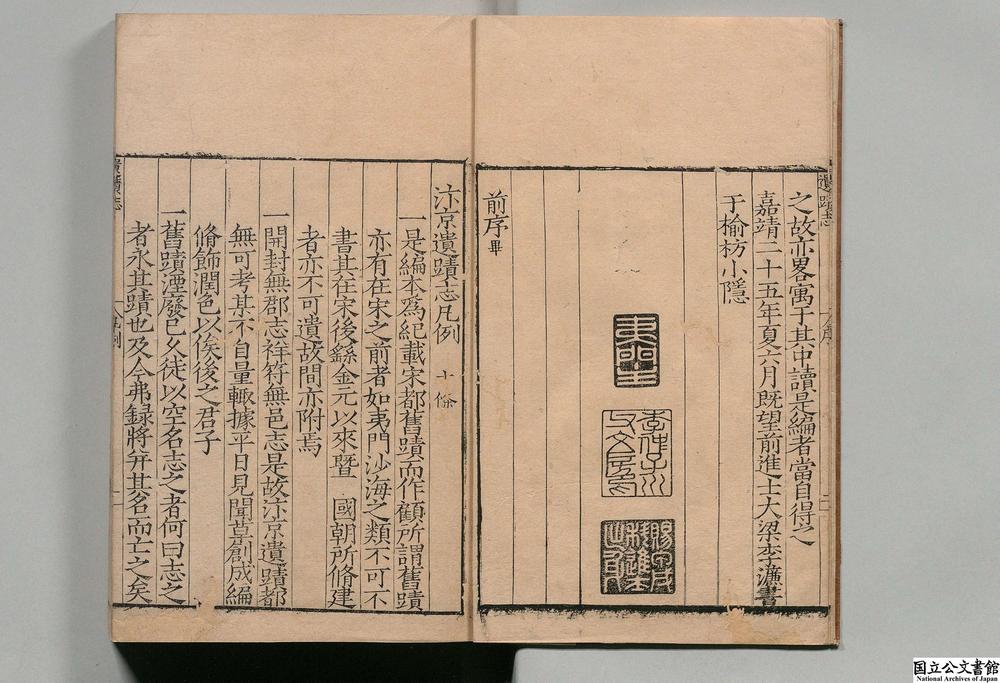 遺蹟志
之故亦畧寓于其中讀是編者當自得之
嘉靖二十五年夏六月既望前進士大梁李濂書
于榆枋小隱
前序畢
汴京遺蹟志凡例 十條
一是編本爲紀載宋都舊蹟而作顧所謂舊蹟
亦有在宋之前者如夷門沙海之類不可不
書其在宋後繇金元以來暨 國朝所脩建
者亦不可遺故間亦附焉
一開封無郡志祥符無邑志是故汴京遺蹟都
無可考某不自量輙據平日見聞草創成編
脩飾潤色以俟後之君子
一舊蹟湮廢已久徒以空名志之者何曰志之
者永其蹟也及今弗録將并其名而亡之矣
凡例
国立公文書館
National Archives of Japan